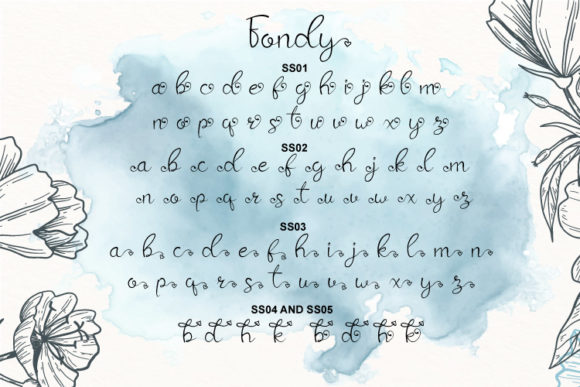 Fondy
SS01
a b c d e f g h i j k l m
n o p q r s t u v w x y z
SS02
a b c d e f g h j k l m
n o p q r s t u v w x y z
SS03
a b c d e f h i j k l m n
o p q r s t u v w x y z
SS04 AND SS05
b d h k b d h k